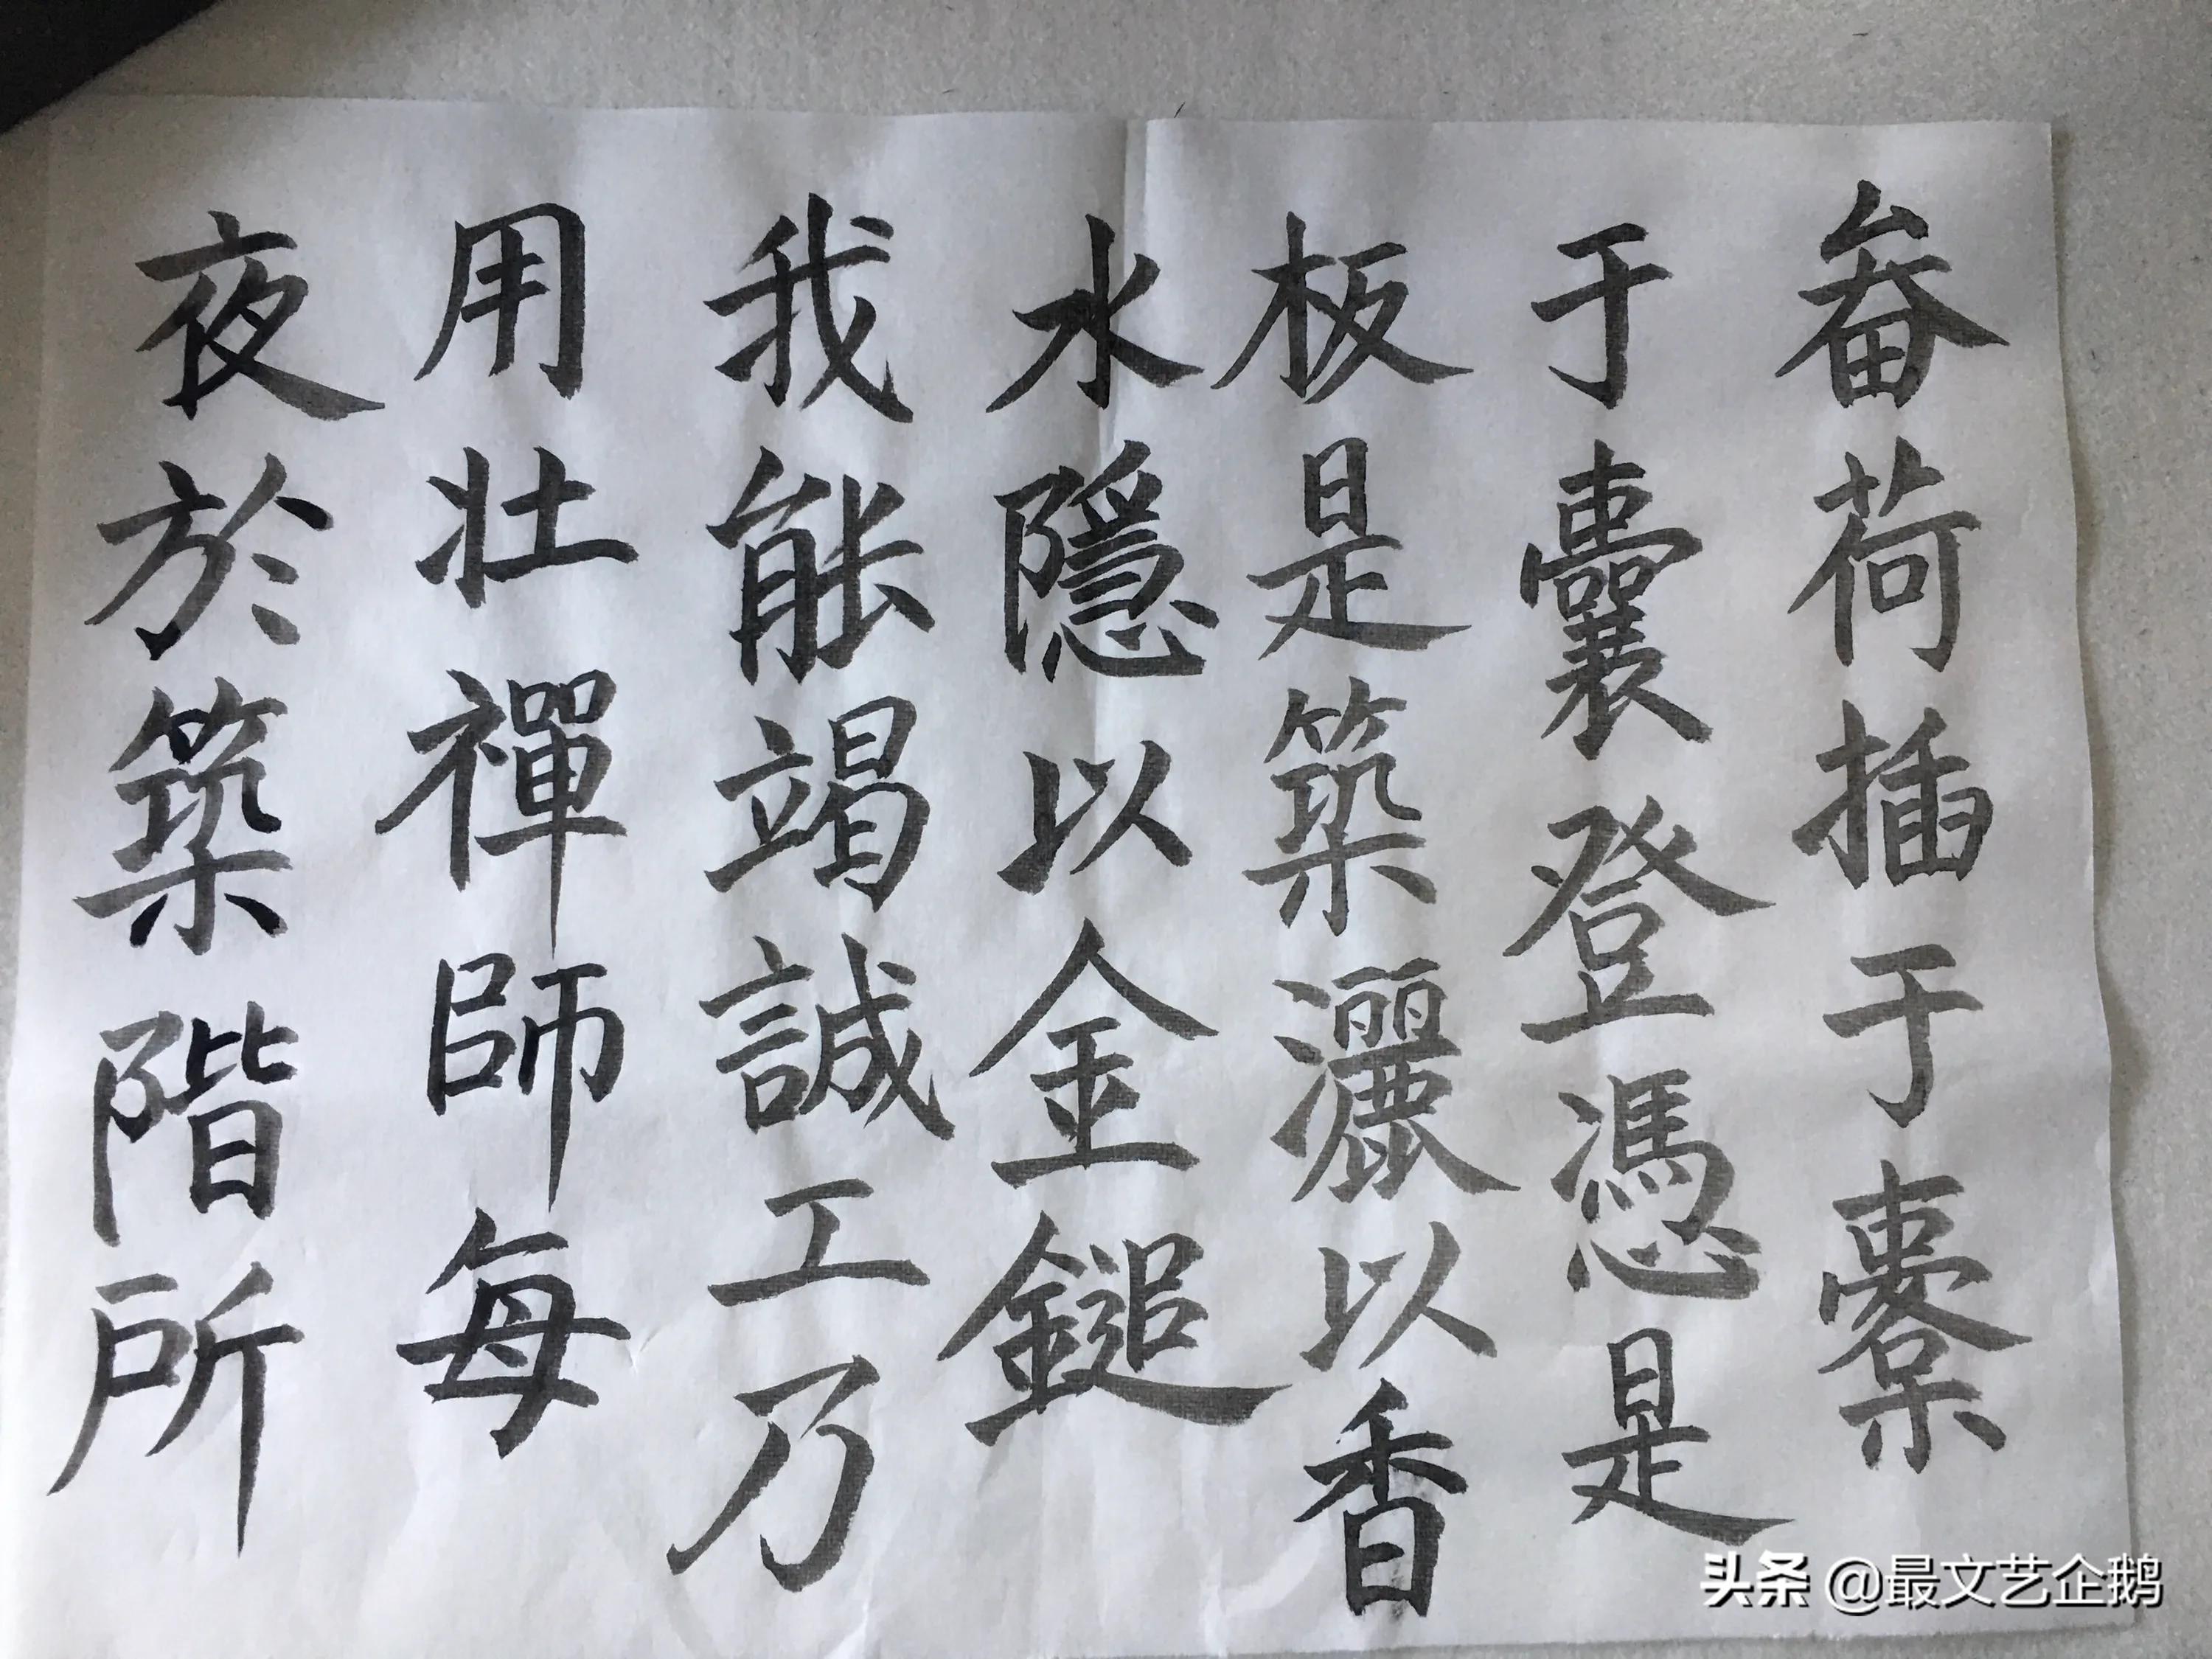 畚荷插于橐
于囊登憑是
板是築灑以香
水隱以金鎚
我能竭誠工乃
用壯禪師每
夜於築階所
头条 @最文艺企鹅